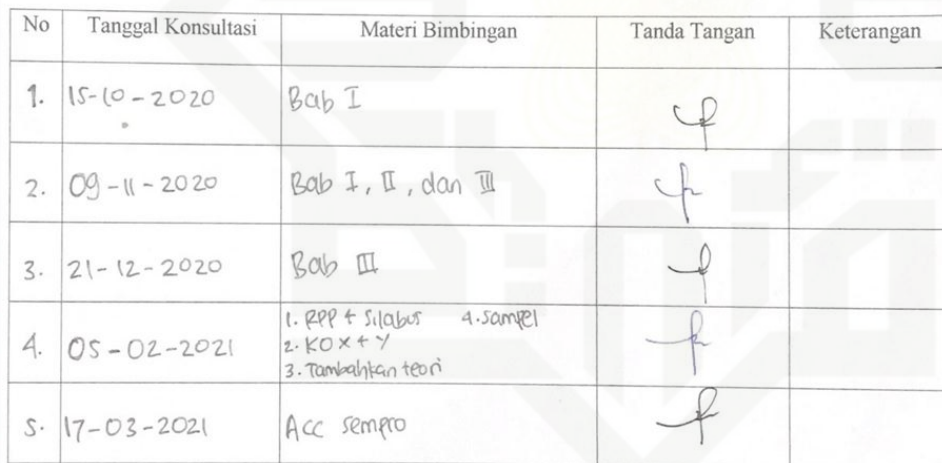 No Tanggal Konsultasi Materi Bimbingan Tanda Tangan Keterangan
1. 15-10-2020 Bab I
2. 09-11-2020 Bab I, II, dan III
3. 21-12-2020 Bab III
4. 05-02-2021 1. RPP + Silabus 4. Sampel
2. KO X + Y
3. Tambahkan teori
5. 17-03-2021 Acc sempro